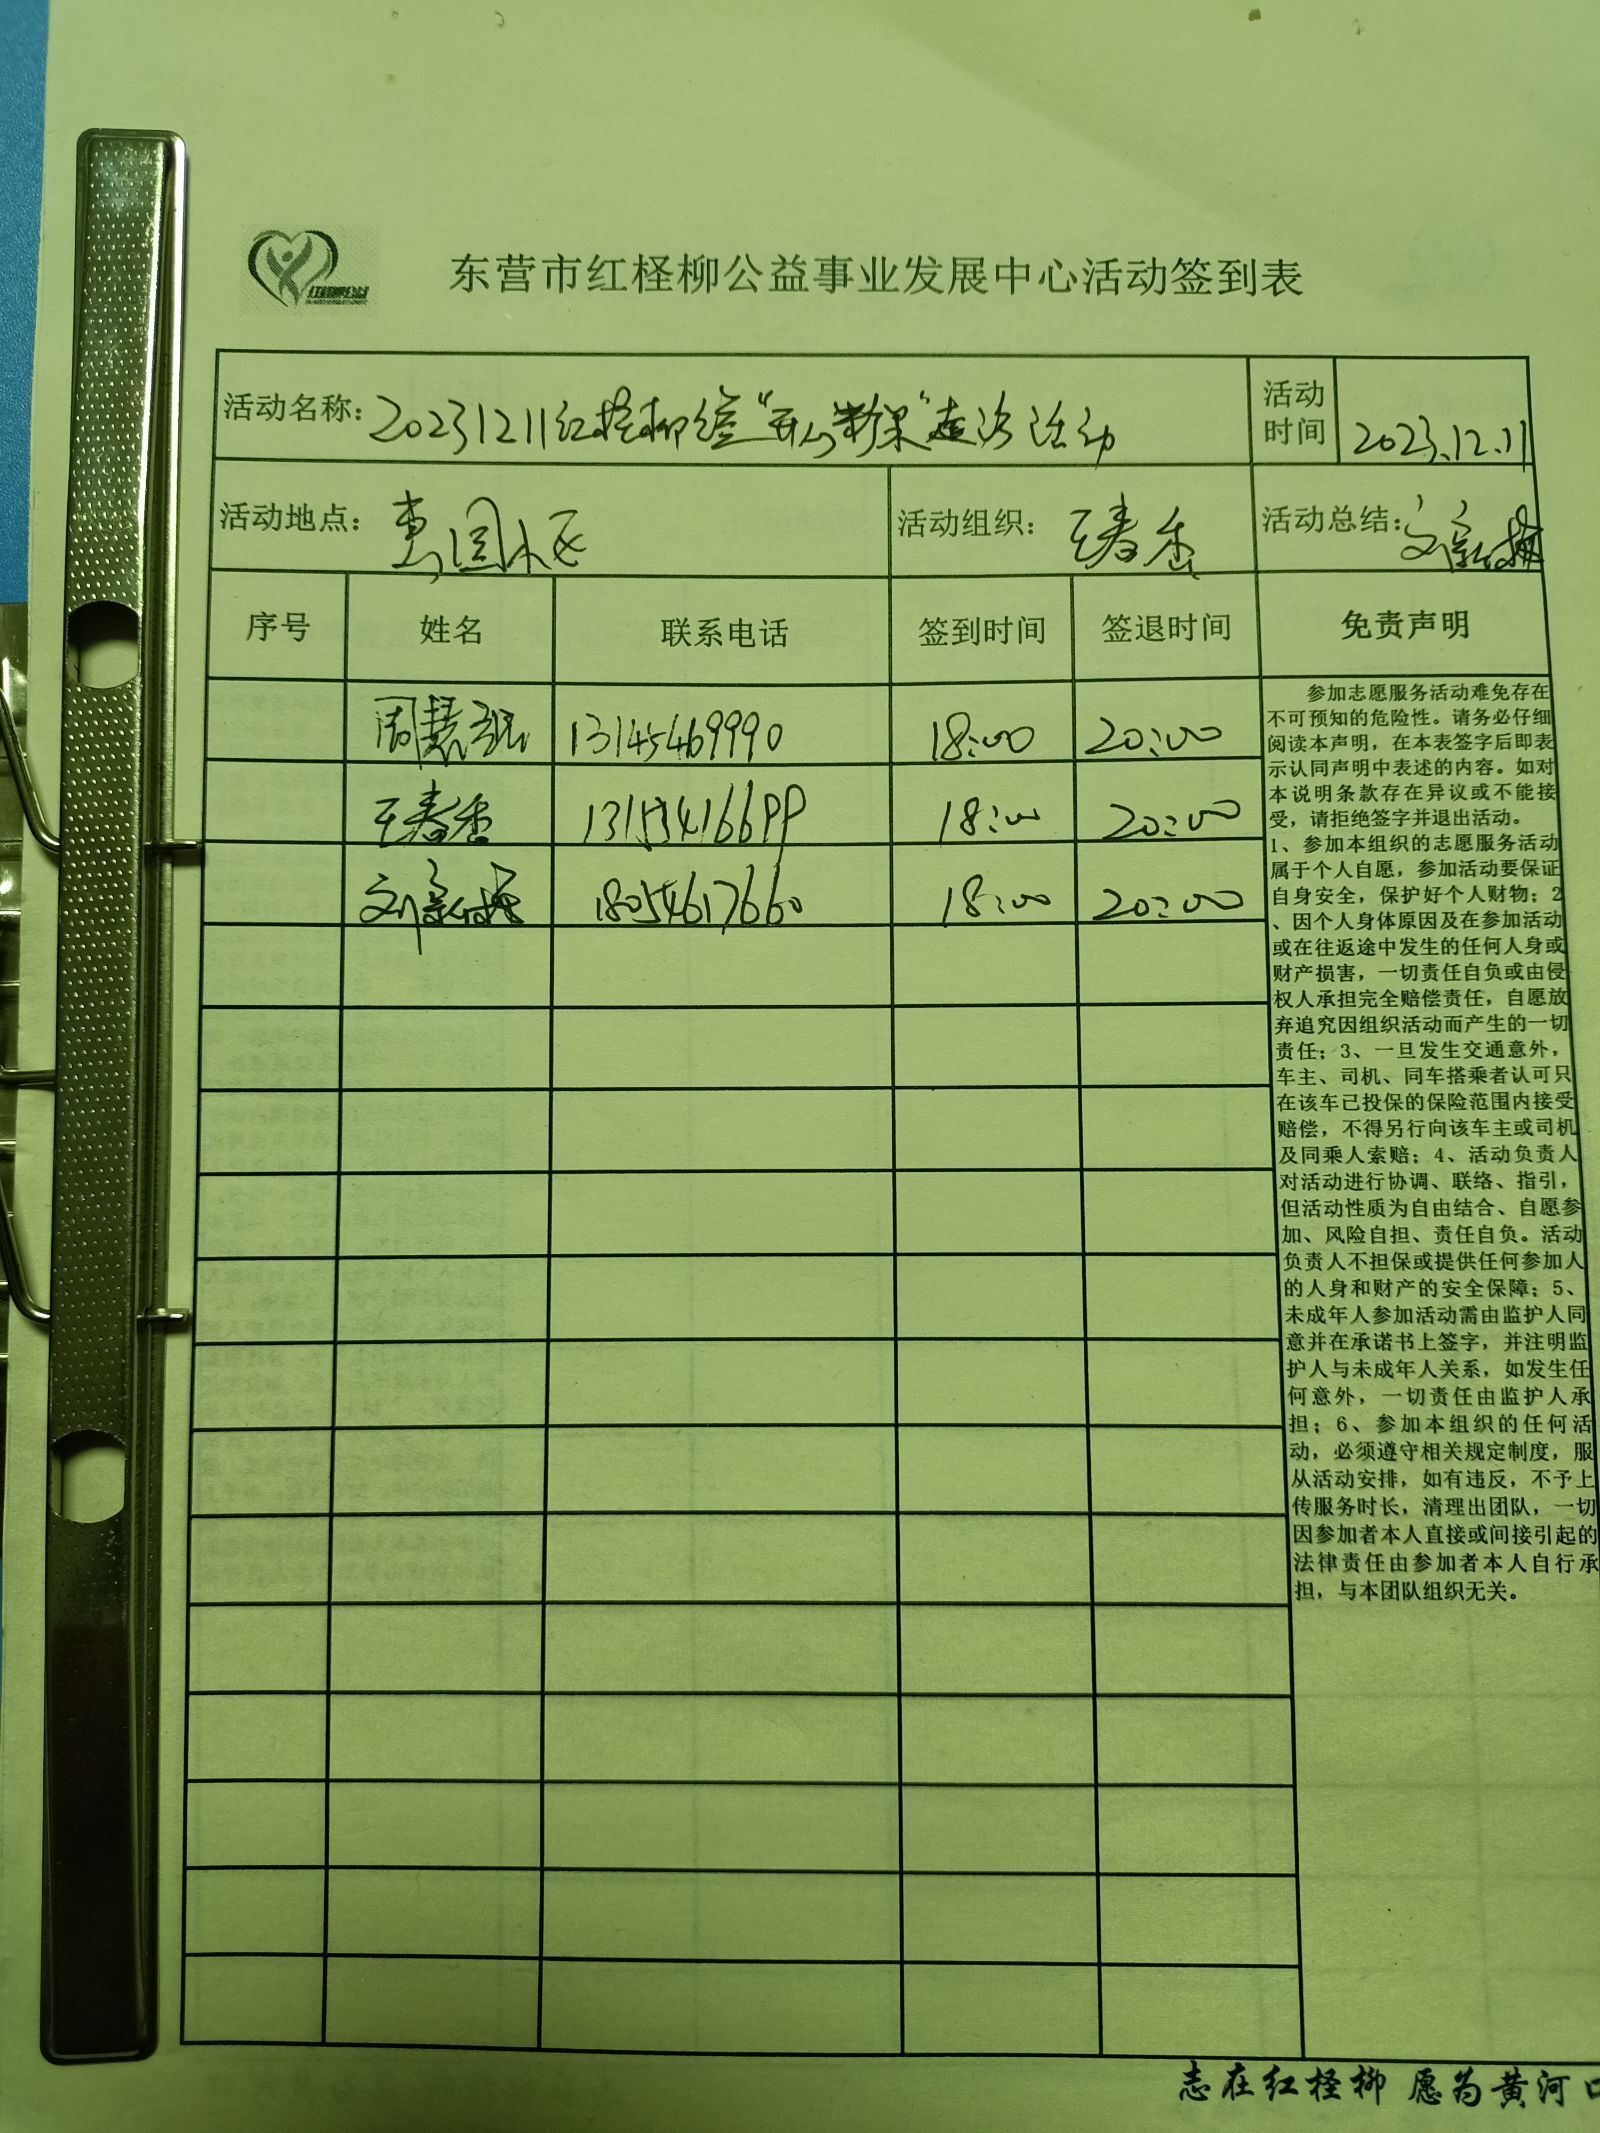 东营市红柽柳公益事业发展中心活动签到表
活动名称: 20231211红柽柳 活动
活动时间 2023.12.11
活动地点: 惠园小区
活动组织: 王春香
活动总结: 刘新梅
序号 姓名 联系电话 签到时间 签退时间 免责声明
周慧 13145469990 18:00 20:00
王春香 18:00 20:00
刘新梅 18054617660 18:00 20:00
参加志愿服务活动难免存在
不可预知的危险性。请务必仔细
阅读本声明，在本表签字后即表
示认同声明中表述的内容。如对
本说明条款存在异议或不能接
受，请拒绝签字并退出活动。
1、参加本组织的志愿服务活动
属于个人自愿，参加活动要保证
自身安全，保护好个人财物；2
、因个人身体原因及在参加活动
或在往返途中发生的任何人身或
财产损害，一切责任自负或由侵
权人承担完全赔偿责任，自愿放
弃追究因组织活动而产生的一切
责任；3、一旦发生交通意外，
车主、司机、同车搭乘者认可只
在该车已投保的保险范围内接受
赔偿，不得另行向该车主或司机
及同乘人索赔；4、活动负责人
对活动进行协调、联络、指引，
但活动性质为自由结合、自愿参
加、风险自担、责任自负。活动
负责人不担保或提供任何参加人
的人身和财产的安全保障；5、
未成年人参加活动需由监护人同
意并在承诺书上签字，并注明监
护人与未成年人关系，如发生任
何意外，一切责任由监护人承
担；6、参加本组织的任何活
动，必须遵守相关规定制度，服
从活动安排，如有违反，不予上
传服务时长，清理出团队，一切
因参加者本人直接或间接引起的
法律责任由参加者本人自行承
担，与本团队组织无关。
志在红柽柳 愿为黄河口